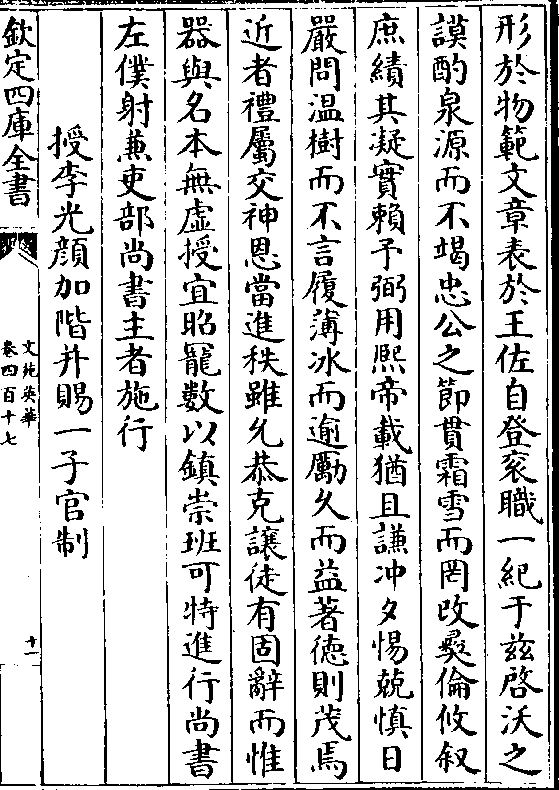 形於物範文章表於王佐自登衮職一紀于兹啓沃之
謨酌泉源而不竭忠公之節貫霜雪而罔改彛倫攸叙
庶績其凝實賴予弼用熙帝載猶且謙冲夕惕兢慎日
嚴問温樹而不言履薄冰而逾勵久而益著徳則茂焉
近者禮屬交神恩當進秩雖允恭克讓徒有固辭而惟
器與名本無虚授宜昭寵數以鎮崇班可特進行尚書
左僕射兼吏部尚書主者施行
授李光顔加階并賜一子官制
欽定四庫全書
文苑英華
卷四百十七
十一